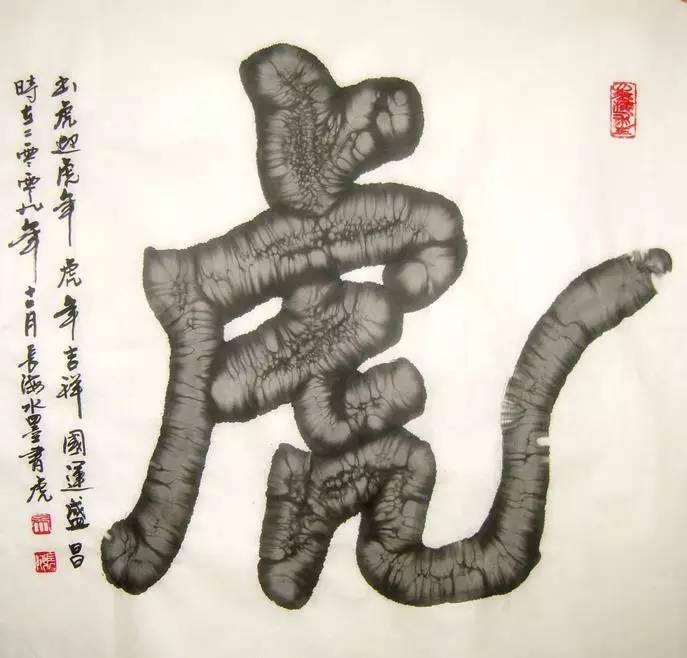 虎
书虎迎虎年 虎年吉祥 國運盛昌
時在二零零九年十二月 长海水墨書虎